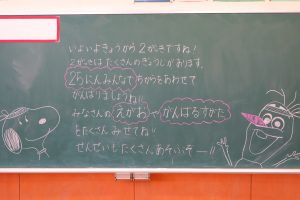 いよいよきょうから2がっきですね!
2がっきはたくさんのぎょうじがあります。
25にんみんなでちからをあわせて
がんばりましょうね!!
みなさんのえがおやがんばるすがた
をたくさんみせてね!!
せんせいともたくさんあそぼうぞー!!